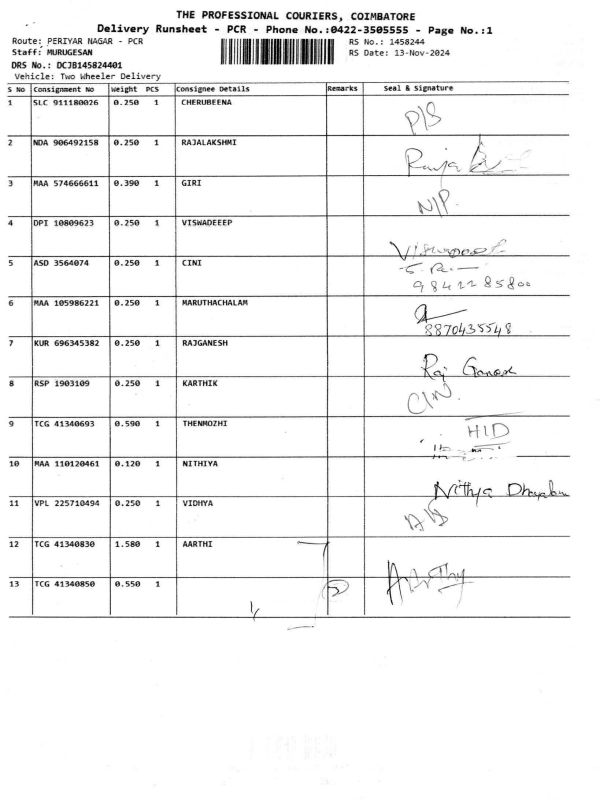 THE PROFESSIONAL COURIERS, COIMBATORE
Delivery Runsheet - PCR - Phone No.:0422-3505555 - Page No.:1
Route: PERIYAR NAGAR - PCR RS No.: 1458244
Staff: MURUGESAN RS Date: 13-Nov-2024
DRS No.: DCJB145824401
Vehicle: Two Wheeler Delivery
S No Consignment No Weight PCS Consignee Details Remarks Seal & Signature
1 SLC 911180026 0.250 1 CHERUBEENA
P/S
2 NDA 906492158 0.250 1 RAJALAKSHMI
3 MAA 574666611 0.390 1 GIRI
N/P.
4 DPI 10809623 0.250 1 VISWADEEEP
5 ASD 3564074 0.250 1 CINI
9842285800
6 MAA 105986221 0.250 1 MARUTHACHALAM
8870435548
7 KUR 696345382 0.250 1 RAJGANESH
Raj Ganesh
8 RSP 1903109 0.250 1 KARTHIK
9 TCG 41340693 0.590 1 THENMOZHI
H/D
10 MAA 110120461 0.120 1 NITHIYA
Nithya
11 VPL 225710494 0.250 1 VIDHYA
12 TCG 41340830 1.580 1 AARTHI
13 TCG 41340850 0.550 1